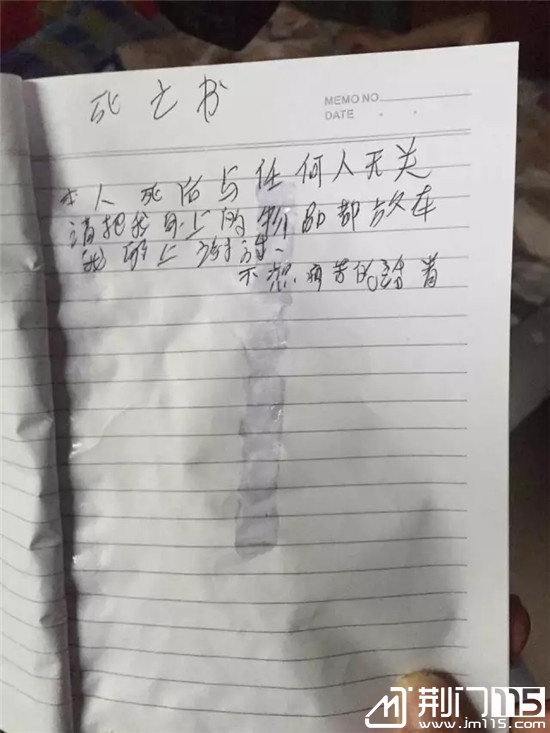 死亡书
MEMO NO.
DATE
本人死后与任何人无关
请把我身上的物品都放在
我身上谢谢
不想痛苦的活着
荆门115
www.jm115.com